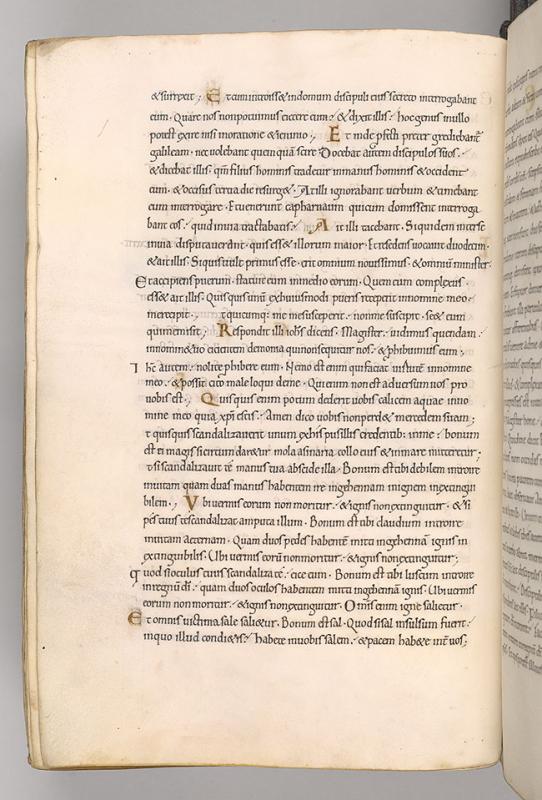 & surrexit; Et cum introiss& in domum discipuli eius secreto interrogabant
eum. Quare nos non potuimus eicere eum? & dixit illis. hoc genus in nullo
potest exire nisi in oratione & ieiunio; Et inde pfecti preter grediebant
galileam. nec volebant quemquā scire. Docebat autem discipulos suos.
& dicebat illis. qm filius hominis tradetur in manus hominū & occident
eum. & occisus tertia die resurg&. At illi ignorabant verbum & timebant
eum interrogare. Et venerunt capharnaum qui cum domi essent interroga
bant eos. quid in via tractabatis? At illi tacebant. Siquidem inter se
in via disputaverant. quis ess& illorum maior. Et residens vocavit duodecim.
& ait illis. Si quis vult primus esse. erit omnium novissimus. & omnium minister.
Et accipiens puerum. statuit eum in medio eorum. Quem cum complexus
ess& ait illis. Quisquis unū ex huiusmodi pueris receperit in nomine meo.
me recipit; Et quicumq: me susceperit. non me suscipit. sed eum
qui me misit; Respondit illi iohs dicens. Magister. vidimus quendam
in nomine tuo eicientem demonia qui non sequitur nos. & phibuimus eum;
Ihc autem. nolite phibere eum. Nemo est enim qui faciat virtutē in nomine
meo. & possit cito male loqui de me. Qui enim non est adversum vos pro
vobis est; Quisquis enim potum dederit vobis calicem aquae in no
mine meo quia xpi estis. Amen dico vobis non perd& mercedem suam;
Et quisquis scandalizaverit unum ex his pusillis credentib: in me. bonum
est ei magis si circumdar&ur mola asinaria collo eius & in mare mitteretur;
Et si scandalizavit te manus tua abscide illa. Bonum est tibi debilem introire
in vitam quam duas manus habentem ire in gehennam in ignem inextingui
bilem; Ubi vermis eorum non moritur. & ignis non extinguitur. & si
pes tuus te scandalizat amputa illum. Bonum est tibi claudum introire
in vitam aeternam. Quam duos pedes habentē mitti in gehennā ignis in
extinguibilis. Ubi vermis eorū non moritur. & ignis non extinguitur;
quod si oculus tuus scandalizat te. eice eum. Bonum est tibi luscum introire
in regnū dī. quam duos oculos habentem mitti in gehennā ignis. Ubi vermis
eorum non moritur. & ignis non extinguitur. Omnis enim igne salietur.
Et omnis victima sale sali&ur. Bonum est sal. Quod si sal insulsum fuerit.
in quo illud condi&is? Habete in vobis salem. & pacem hab&e int vos;